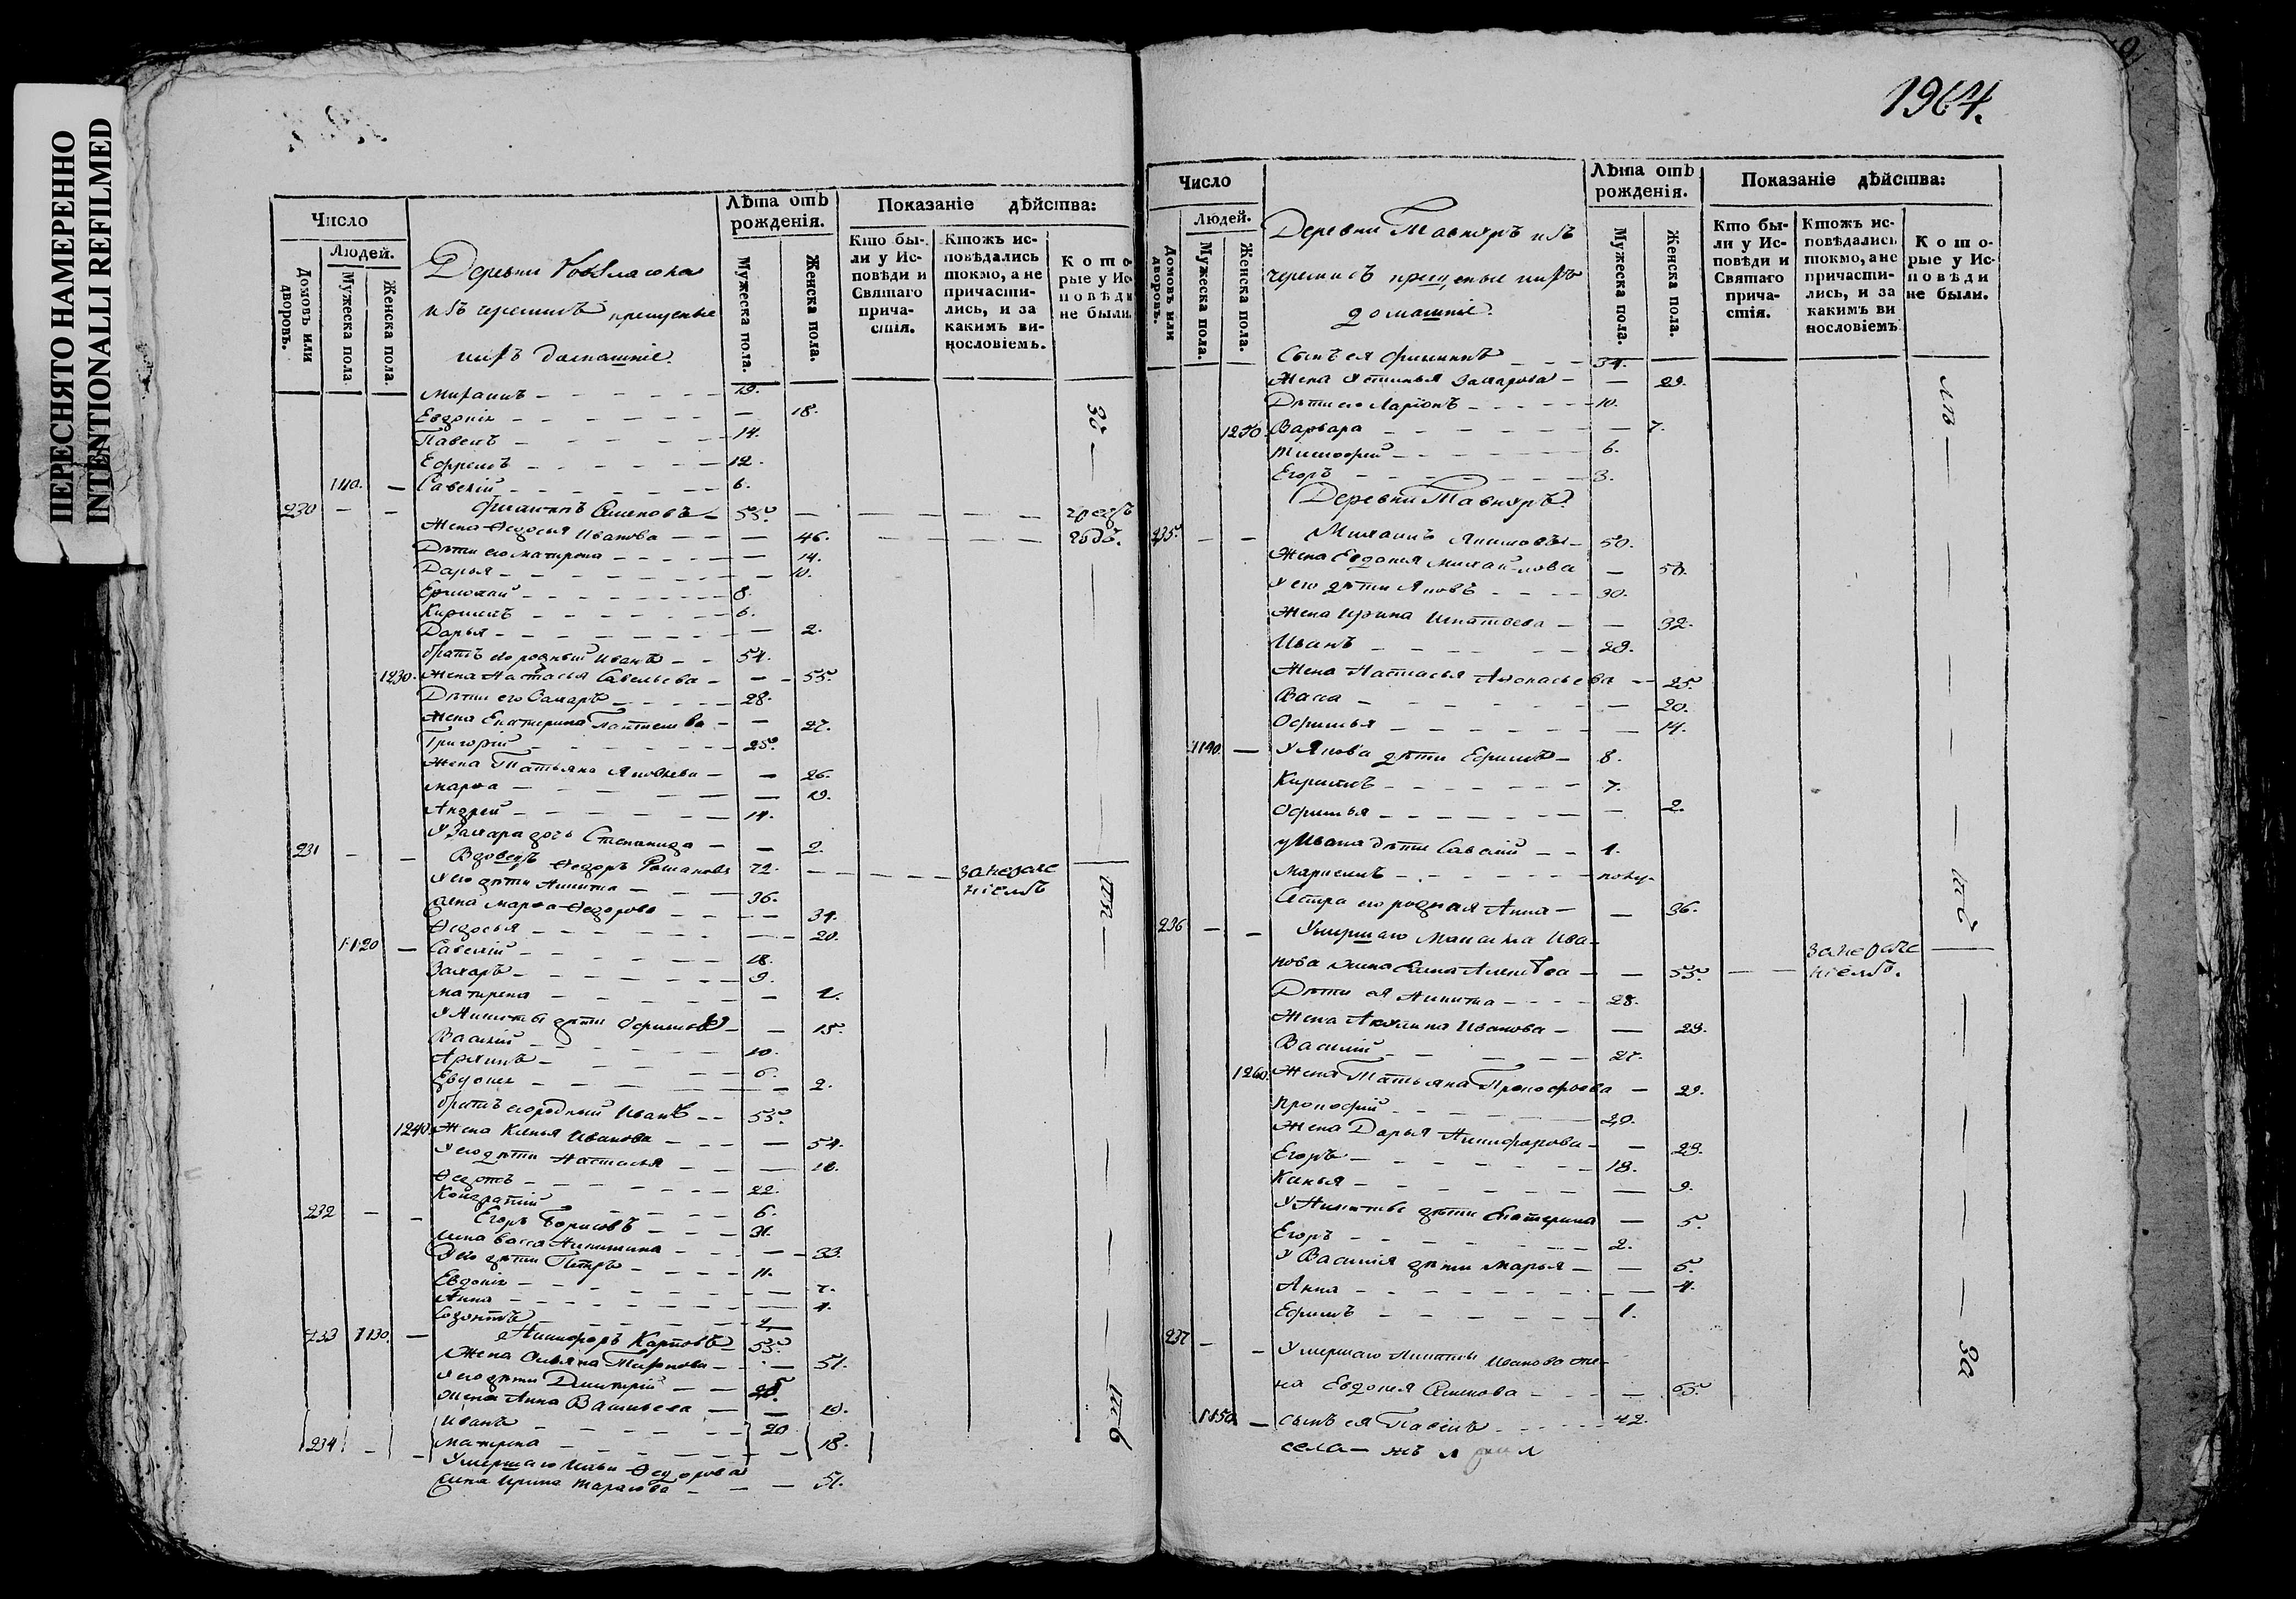 ПЕРЕСНЯТО НАМЕРЕННО
INTENTIONALLI REFILMED
Число
Людей.
Домовъ или дворовъ.
Мужеска пола
Женска пола.
Деревни
изъ черемисъ крещеные
ихъ домашніе.
Лѣта отъ рожденія.
Мужеска пола.
Женска пола.
Показаніе дѣйства:
Кто бы-
ли у Ис-
повѣди и
Святаго
прича-
стія.
Ктожъ ис-
повѣдались
токмо, а не
причасти-
лись, и за
какимъ ви-
нословіемъ.
Кото-
рые у Ис-
повѣди
не были.
Михаилъ 19.
Евдокія 18.
Павелъ 14.
Ефремъ 12.
1110. Савелій 6.
230 Филипъ Семеновъ 55.
Жена Ѳедосья Иванова 46.
Дѣти его Матрона 14.
Дарья 10.
Ермолай 8.
Кирилъ 6.
Дарья 2.
братъ его родный Иванъ 54.
1230. Жена Настасья Савельева 55.
Дѣти его Захаръ 28.
Жена Екатерина 27.
Григорій 25.
Жена Татьяна Яковлева 26.
Марѳа 19.
Андрей 14.
У Захара дочь Степанида 2.
231 Вдовецъ Ѳедоръ Романовъ 72. за нераче
ніемъ
У его дѣти Никита 36.
жена Марѳа Ѳедорова 34.
Ѳедосья 20.
1120 Савелій 18.
Захаръ 9.
Матрена
У Никиты дѣти 15.
Василій 10.
6.
Евдокія 2.
братъ его родный Иванъ 55.
1240. Жена Ксенья Иванова 54.
У его дѣти Настасья
Ѳедотъ 22.
Кондратій 6.
232 Егоръ Борисовъ 31.
жена Васса Никитина 33.
У его дѣти Петръ 11.
Евдокія 7.
Анна 4.
Созонтъ
233 1130. Никифоръ Карповъ 55.
Жена Ульяна 51.
У его дѣти Дмитрій
Жена Анна Васильева 19.
Иванъ 20
Матрена 18.
234 Умершаго Ильи Ѳедорова
жена Ирина Тарасова 51.
1964.
Число
Людей.
Домовъ или дворовъ.
Мужеска пола.
Женска пола.
Деревни изъ
черемисъ крещеные ихъ
домашніе.
Лѣта отъ рожденія.
Мужеска пола.
Женска пола.
Показаніе дѣйства:
Кто бы-
ли у Ис-
повѣди и
Святаго
прича-
стія.
Ктожъ ис-
повѣдались
токмо, а не
причасти-
лись, и за
какимъ ви
нословіемъ
Кото-
рые у Ис-
повѣди
не были.
Сынъ ея Филипъ 34.
Жена Устинья Захарова 29.
Дѣти его Ларіонъ 10.
1250. Варвара 7.
Тимофей 6.
Егоръ 3.
Деревни
235. Михаилъ 50.
Жена Евдокія Михайлова 50.
У его дѣти Яковъ 30.
Жена Ирина Игнатьева 32.
Иванъ 29.
Жена Настасья Афонасьева 25.
Васса 20.
Офимья 14.
1140. У Якова дѣти Ефимъ 8.
Кирилъ 7.
Офимья 2.
у Ивана дѣти Савелій 4.
полу-
Сестра его родная Анна 36.
236 Умершаго Ива-
нова жена 55 за нераче
ніемъ.
Дѣти ея Никита 28.
Жена Акулина Иванова 29.
Василій 27.
1260. Жена Татьяна Прокофьева 29.
Прокофій 20.
Жена Дарья Никифорова 29.
Егоръ 18.
Ксенья 9.
У Никиты дѣти Екатерина 5.
Егоръ 2.
У Василія дѣти Марья 5.
Анна 4.
Ефимъ 1.
237 Умершаго Никиты Иванова же-
на Евдокія Семенова 65.
1150. сынъ ея Павелъ 42.
села